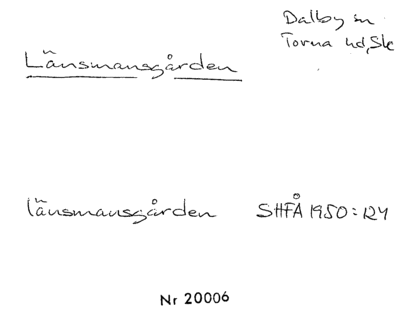 Dalby sn
Torna hd, Sk
Länsmansgården
länsmansgården SHFÅ 1950:124
Nr 20006